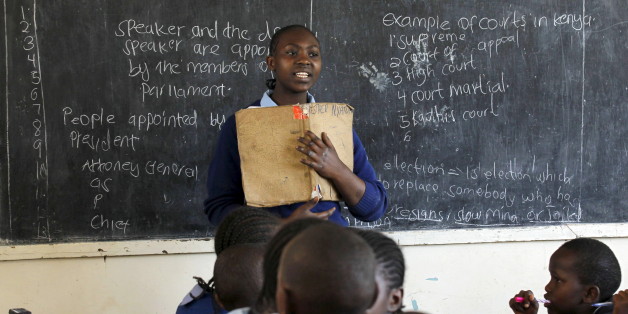 1
2
3
4
5
6
7
8
9
10
Speaker and the de
speaker are appoi
by the members o
parliament.
People appointed by
President
Attorney General
Chief
Example of courts in Kenya
1 supreme
2 court of appeal
3 High court
4 court martial
5 Kadhis court
6
election → Is election which
to replace somebody who ha
resigns